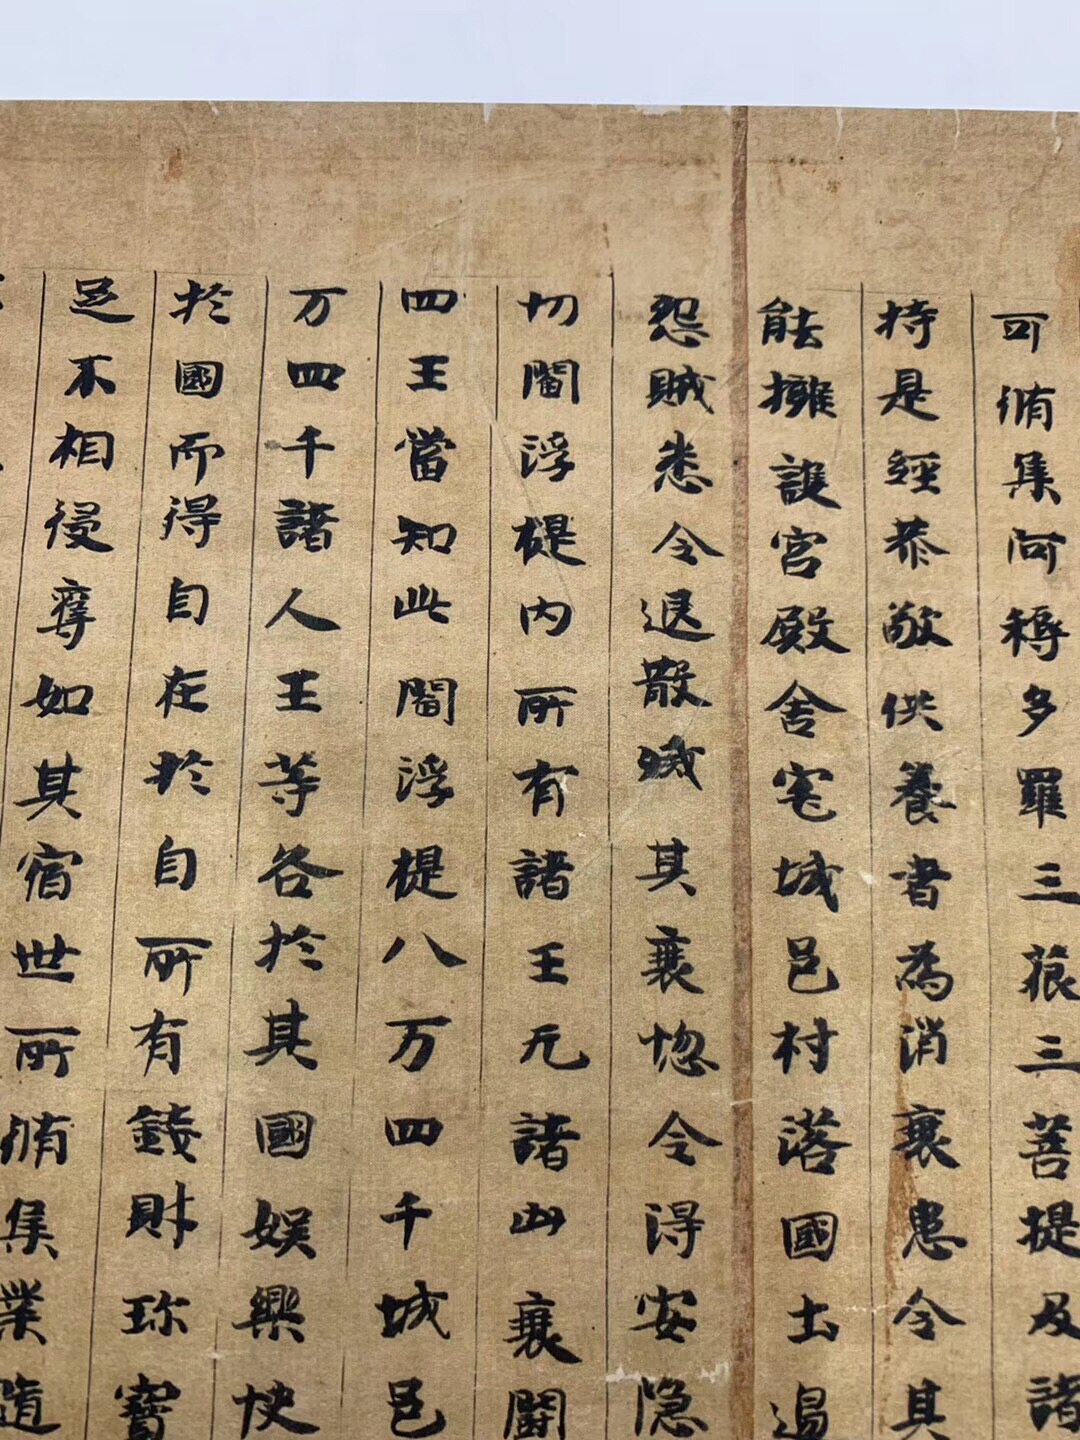 可脩集阿耨多羅三藐三菩提及諸
持是經恭敬供養書為消衰患令其
能擁護宮殿舍宅城邑村落國土邊
怨賊悉令退散滅其衰惱令得安隱
切閻浮提內所有諸王无諸凶衰鬪
四王當知此閻浮提八万四千城邑
万四千諸人王等各於其國娛樂快
於國而得自在於自所有錢財珎寶
足不相侵奪如其宿世所脩集業隨